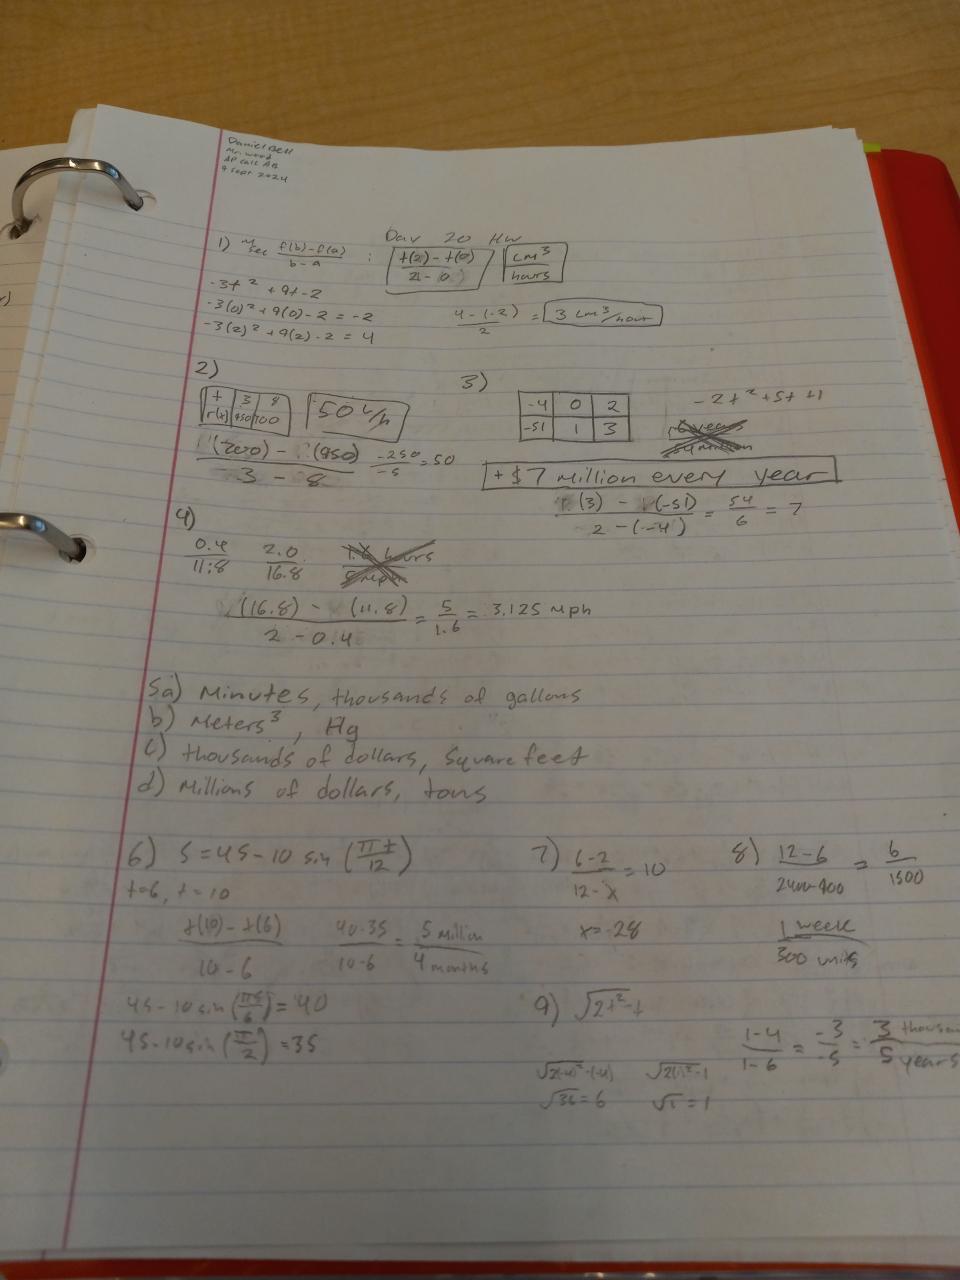 Daniel Bell
Mr. Wood
AP Calc AB
9 Sept 2024
Day 20 Hw
1) M sec f(b)-f(a) / b-a : f(2)-f(0) / 2-0 cm³ / hours
-3t² + 9t-2
-3(0)² + 9(0)-2 = -2
-3(2)² + 9(2)-2 = 4
4-(-2) / 2 = 3 cm³/hour
2)
t 3 8
r(t) 450 700
50 L/h
(700) - (450) / 3 - 8 -250 / -5 = 50
3)
-4 0 2
-51 1 3
-2t² + 5t + 1
+ $7 Million every year
(3) - (-51) / 2-(-4) = 54 / 6 = 7
4)
0.4 / 11.8 2.0 / 16.8
(16.8) - (11.8) / 2 - 0.4 = 5 / 1.6 = 3.125 mph
5a) Minutes, thousands of gallons
b) Meters³, Hg
c) thousands of dollars, square feet
d) Millions of dollars, tons
6) S=45-10 sin (πt / 12)
t=6, t=10
f(10) - f(6) / 10-6 40-35 / 10-6 = 5 Million / 4 months
45-10 sin (π5 / 6) = 40
45-10sin (π / 2) = 35
7) 6-2 / 12-x = 10
x=-28
8) 12-6 / 2400-900 = 6 / 1500
1 week / 300 units
9) √2t²-t
√2(-4)²-(-4) √2(1)²-1
√36 = 6 √1 = 1
1-4 / 1-6 = -3 / -5 = 3 / 5 years